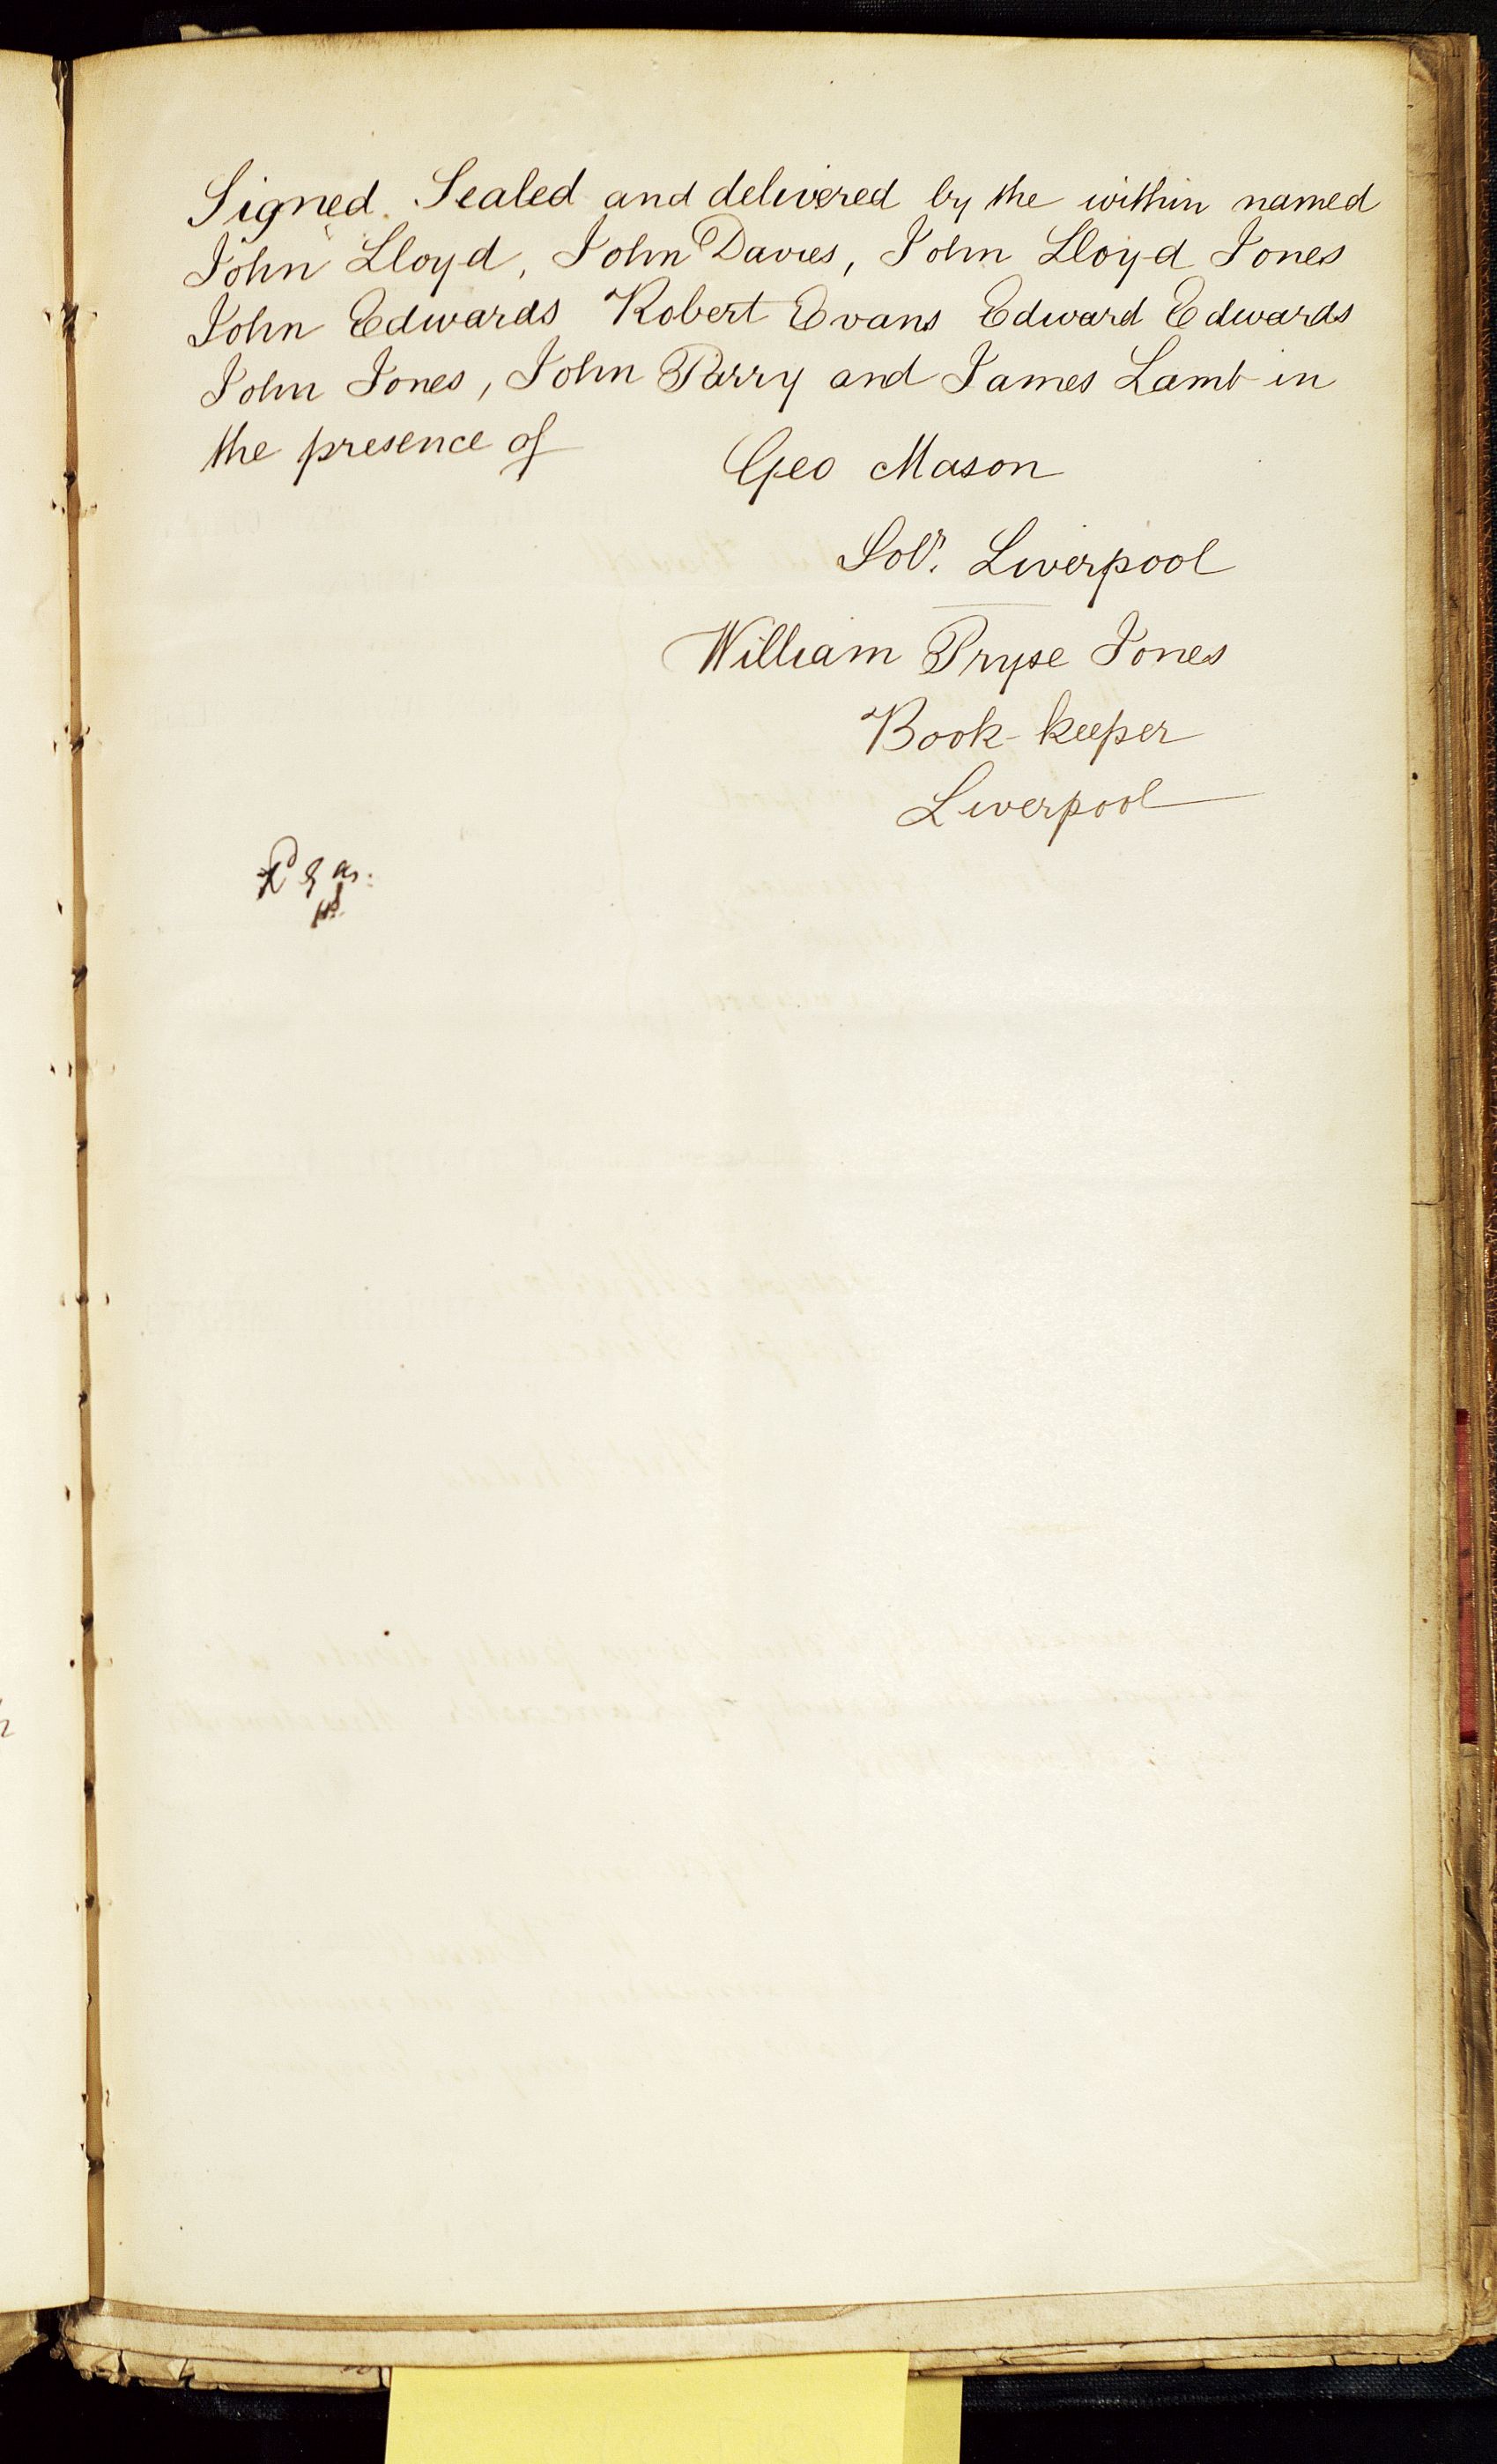 Signed. Sealed and delivered by the within named
John Lloyd, John Davies, John Lloyd Jones
John Edwards Robert Evans Edward Edwards
John Jones, John Parry and James Lamb in
the presence of
Geo Mason
Solr. Liverpool
William Pryse Jones
Book-keeper
Liverpool